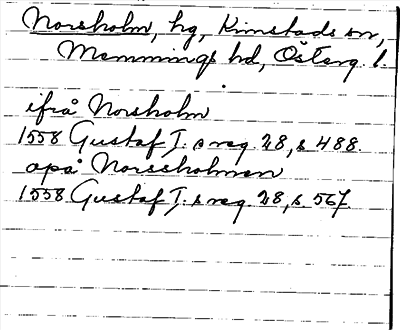 Norsholm, hg, Kimstads sn,
Memmings hd, Österg. l.
ifrå Norsholm
1558 Gustaf I. s reg. 28, s 488.
opå Norssholmen
1558 Gustaf I. s reg. 28, s. 567